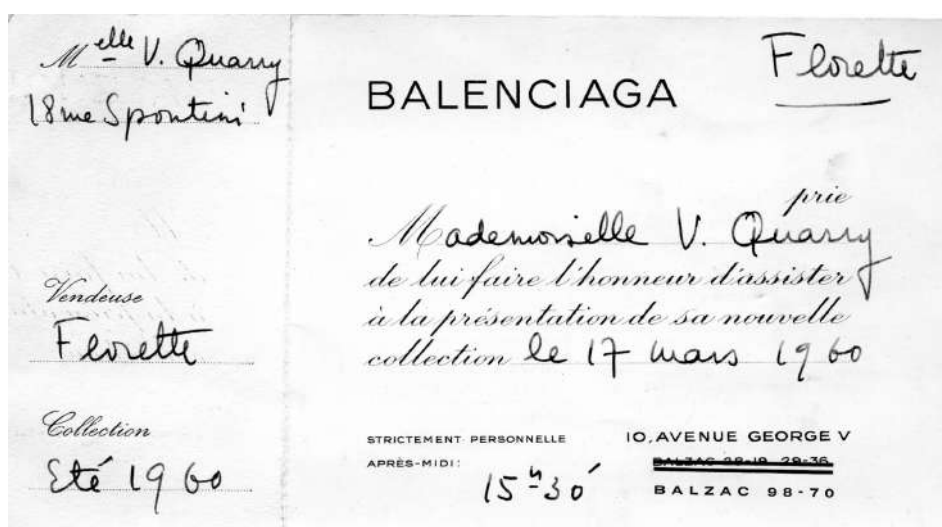 Melle V. Quarry
18 rue Spontini
Vendeuse
Florette
Collection
Eté 1960
Florette
BALENCIAGA
prie
Mademoiselle V. Quarry
de lui faire l'honneur d'assister
à la présentation de sa nouvelle
collection le 17 mars 1960
STRICTEMENT PERSONNELLE
APRÈS-MIDI: 15h30
10, AVENUE GEORGE V
BALZAC 29-36
BALZAC 98-70